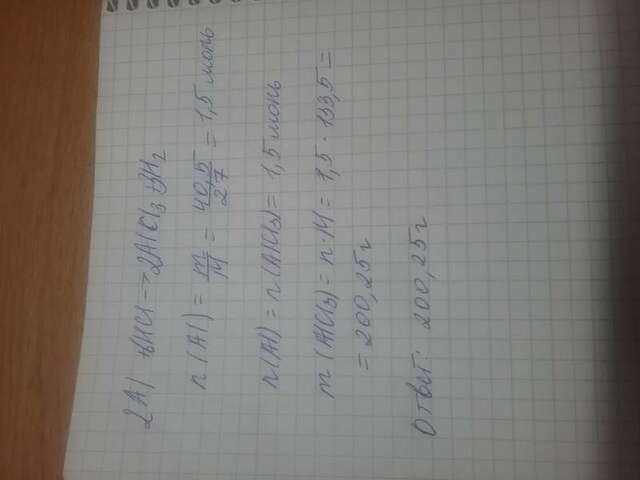 2Al + 6HCl → 2AlCl₃ + 3H₂
n(Al) = m/M = 40,5/27 = 1,5 моль
n(Al) = n(AlCl₃) = 1,5 моль
m(AlCl₃) = n·M = 1,5·133,5 =
= 200,25г
Ответ: 200,25г